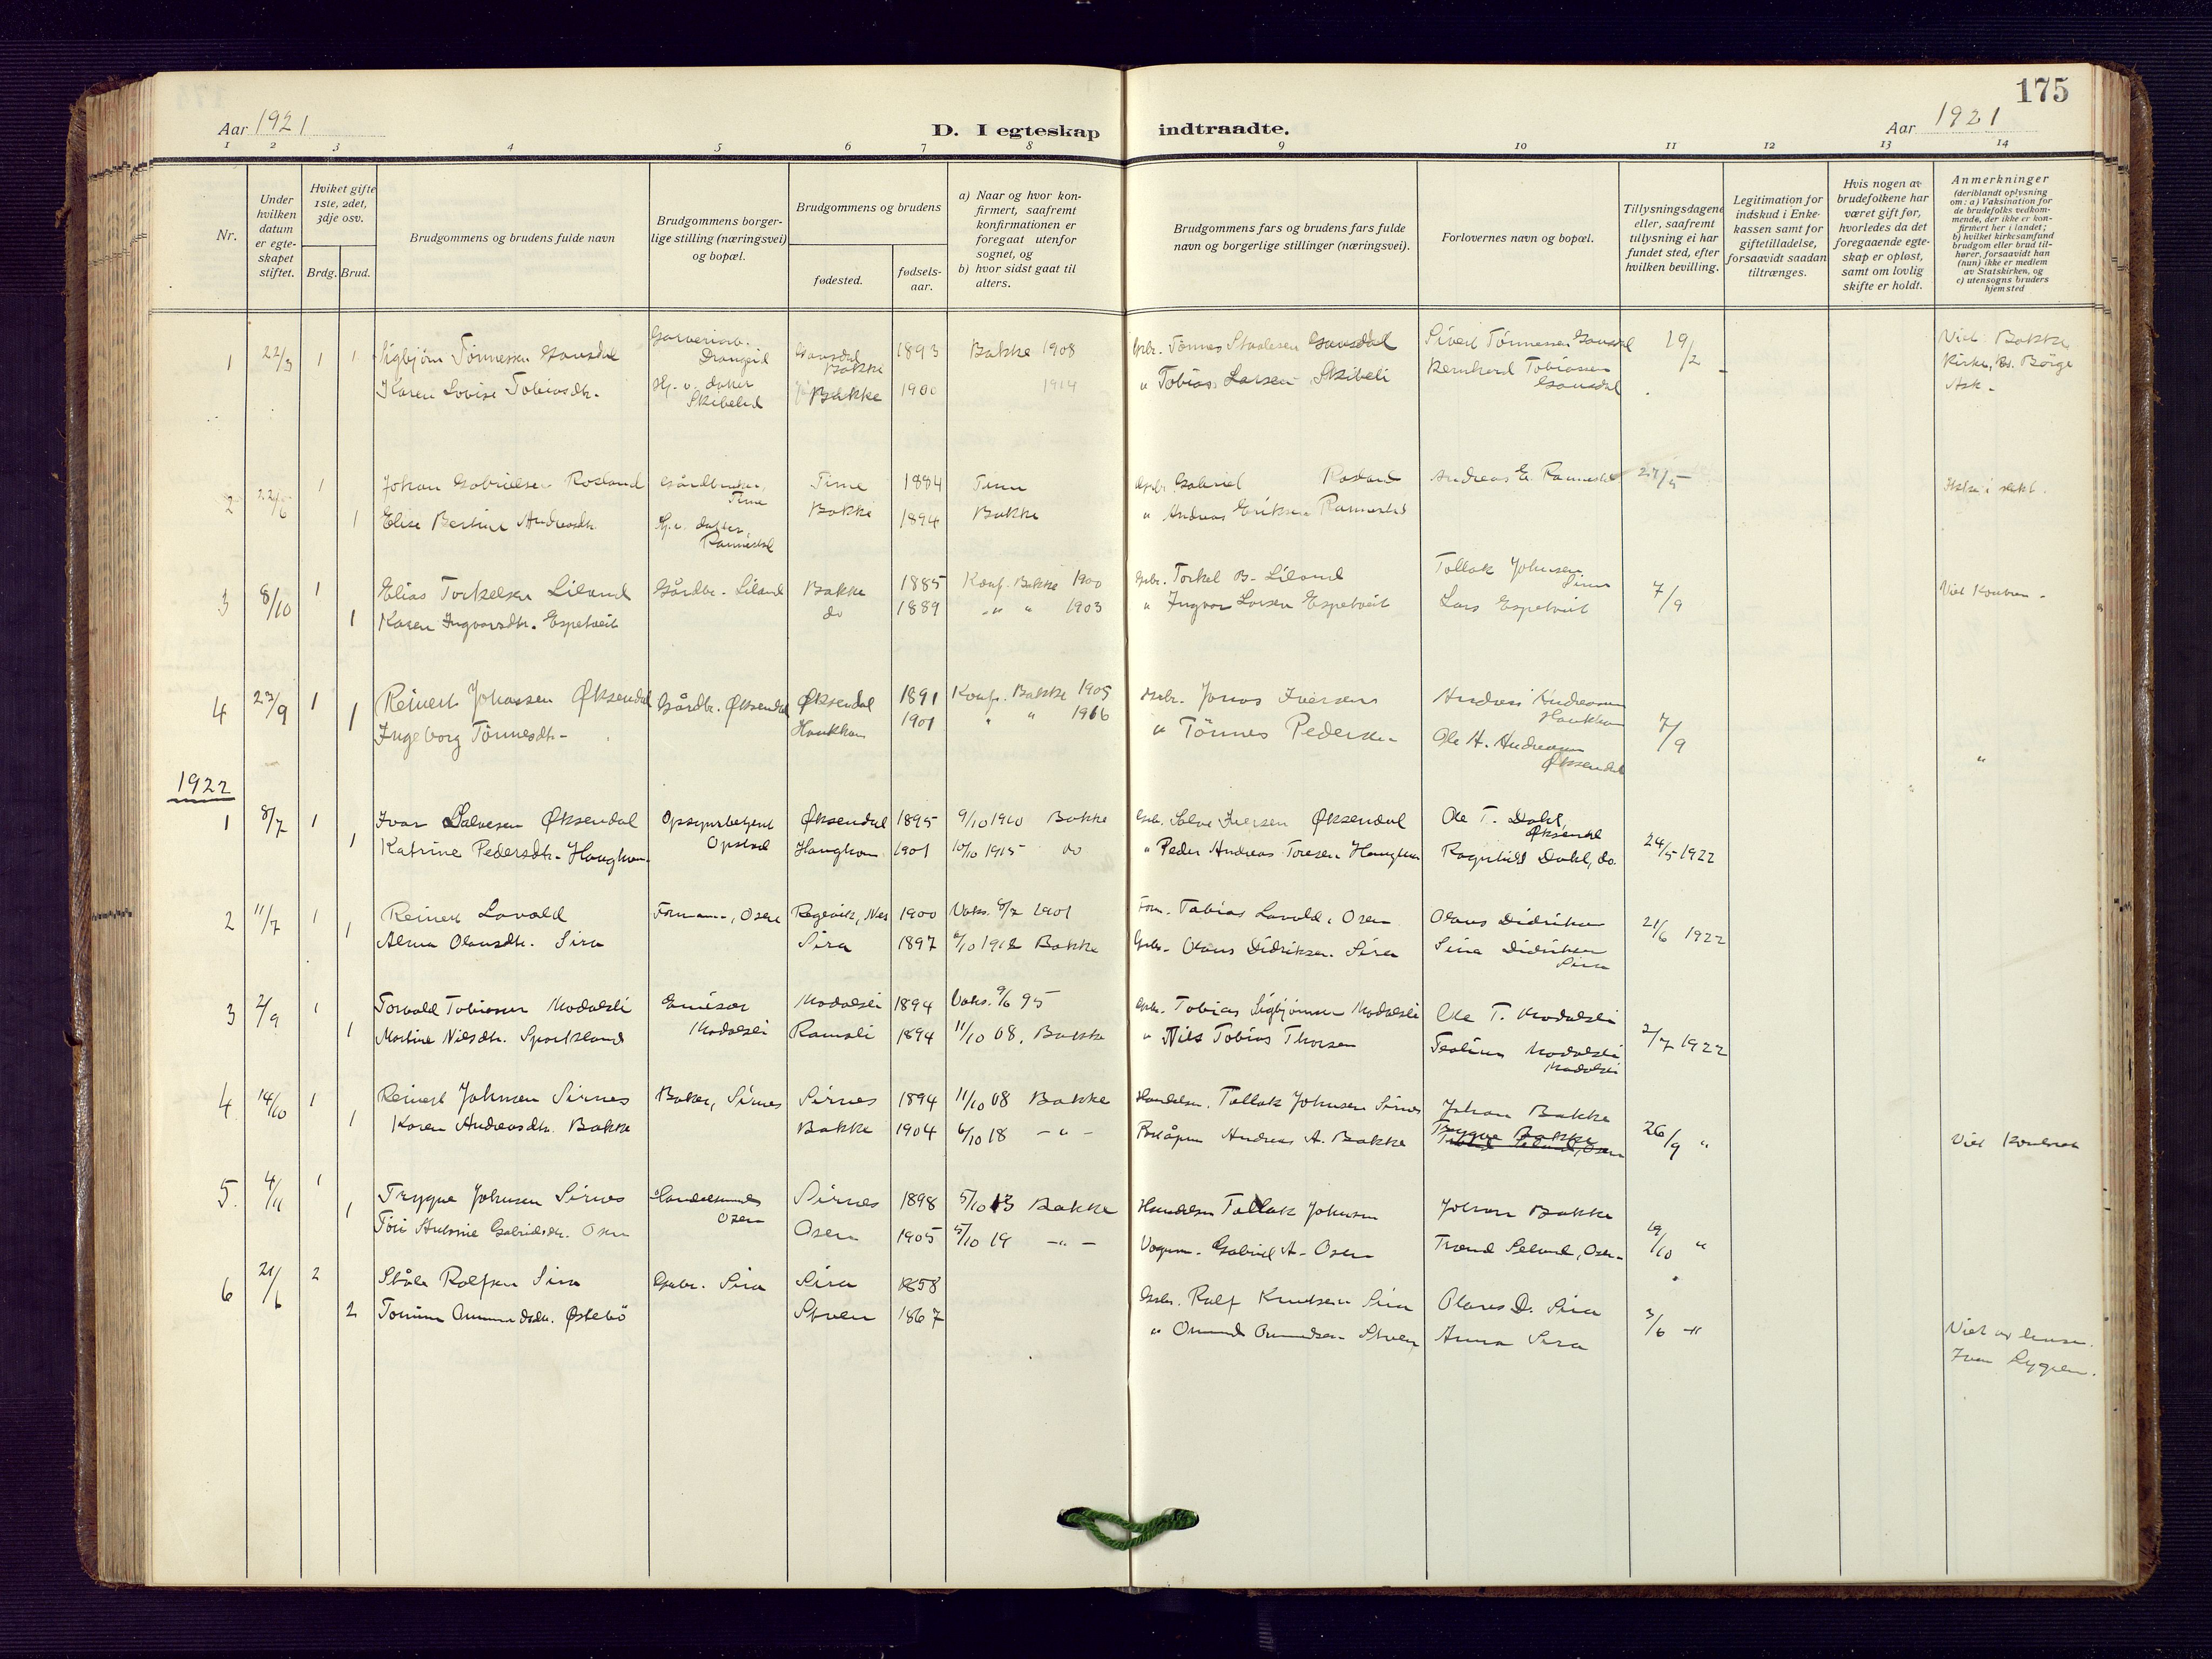 175
Aar 1921
D. I egteskap indtraadte.
Aar 1921
1 2 3 4 5 6 7 8 9 10 11 12 13 14
Nr.
Under hvilken datum er egte-skapet stiftet.
Hviket gifte 1ste, 2det, 3dje osv.
Brdg. Brud.
Brudgommens og brudens fulde navn
Brudgommens borger-lige stilling (næringsvei) og bopæl.
Brudgommens og brudens
fødested.
fødsels-aar.
a) Naar og hvor kon-firmert, saafremt konfirmationen er foregaat utenfor sognet, og
b) hvor sidst gaat til alters.
Brudgommens fars og brudens fars fulde navn og borgerlige stillinger (næringsvei).
Forlovernes navn og bopæl.
Tillysningsdagene eller, saafremt tillysning ei har fundet sted, efter hvilken bevilling.
Legitimation for indskud i Enke-kassen samt for giftetilladelse, forsaavidt saadan tiltrænges.
Hvis nogen av brudefolkene har været gift før, hvorledes da det foregaaende egte-skap er opløst, samt om lovlig skifte er holdt.
Anmerkninger (deriblandt oplysning om: a) Vaksination for de brudefolks vedkom-mende, der ikke er kon-firmert her i landet; b) hvilket kirkesamfund brudgom eller brud til-hører, forsaavidt han (hun) ikke er medlem av Statskirken, og c) utensogns bruders hjemsted
1 22/3 1 1 Sigbjørn Tønnessen Gausdal Drangeid Gausdal Bakke 1893 Bakke 1908 Gbr. Tønnes Staalesen Gausdal Sivert Tønnessen Gausdal 19/2 Viet. Bakke
Karen Lovise Tobiasdtr. Hj. v. datter Skibelid Bakke 1900 1914 " Tobias Larsen Skibeli Bernhard Tobiassen Gausdal Kirke, Børge Ask.
2 22/6 1 Johan Gabrielsen Rosland Gårdbruker, Time Time 1884 Time Gbr. Gabriel Rosland Andreas E. Rannestad 27/5
1 Elise Bertine Andreasdtr. Hj. v. datter, Rannestad Bakke 1894 Bakke " Andreas Eriksen Rannestad
3 8/10 1 Elias Torkelsen Liland Gårdbr. Liland Bakke 1885 Konf. Bakke 1900 Gbr. Torkel B. Liland Tollak Johnsen Sirnes 7/9
1 Karen Ingvarsdtr. Espetveit do 1889 " " 1903 " Ingvar Larsen Espetveit Lars Espetveit
4 23/9 1 Reinert Johnssen Øksendal Gårdbr. Øksendal Øksendal 1891 Konf. Bakke 1905 Gbr. Jonas Iversen Andreas Andreassen Haukhom 7/9
1 Ingeborg Tønnesdtr. Haukhom 1901 " " 1916 " Tønnes Pedersen Ole H. Andreassen Øksendal "
1922
1 8/7 1 Ivar Salvesen Øksendal Opsynsbetjent Opstad Øksendal 1895 9/10 1910 Bakke Gbr. Salve Iversen Øksendal Ole T. Dahl, Øksendal 24/5 1922
1 Katrine Pedersdtr. Haughom Haughom 1901 10/10 1915 do " Peder Andreas Toresen Haughom Ragnhild Dahl, do.
2 11/7 1 Reinert Lavold Formann, Osen Regevik, Nes 1900 Vaks. 8/7 1901 Form. Tobias Lavold, Osen Olaus Didriksen 21/6 1922
1 Alma Olausdtr. Sira Sira 1897 6/10 1912 Bakke Gbr. Olaus Didriksen Sira Sina Didriksen Sira
3 2/9 1 Torvald Tobiassen Modalsli Emisær Modalsli Modalsli 1894 Vaks. 9/6 95 Gbr. Tobias Sigbjørnsen Modalsli Ole T. Modalsli 2/7 1922
1 Martine Nilsdtr. Sportsland Ramsli 1894 11/10 08, Bakke " Nils Tobias Thorsen Modalsli Modalsli
4 14/10 1 Reinert Johnsen Sirnes Baker, Sirnes Sirnes 1894 11/10 08 Bakke Handelsm. Tollak Johnsen Sirnes Johan Bakke 26/9 "
1 Karen Andreasdtr. Bakke Bakke 1904 6/10 18 - " - Poståpner Andreas A. Bakke Trygve Bakke Viet Kontrakt
5. 4/11 1 Trygve Johnsen Sirnes Handelsmann Osen Sirnes 1898 5/10 13 Bakke Handelsm Tollak Johnsen Johan Bakke 19/10 "
1 Gabrielsdtr. Osen Osen 1905 5/10 19 - " - Vognm. Gabriel A. Osen Trond Selund, Osen
6 21/6 2 Ståle Rolfsen Sira Gbr. Sira Sira 1858 Gbr. Rolf Knutsen Sira Olaus D. Sira 3/6 "
2 Tomine Østebø Stven 1867 " Omund Omundsen Anna Sira Viet av lensm.